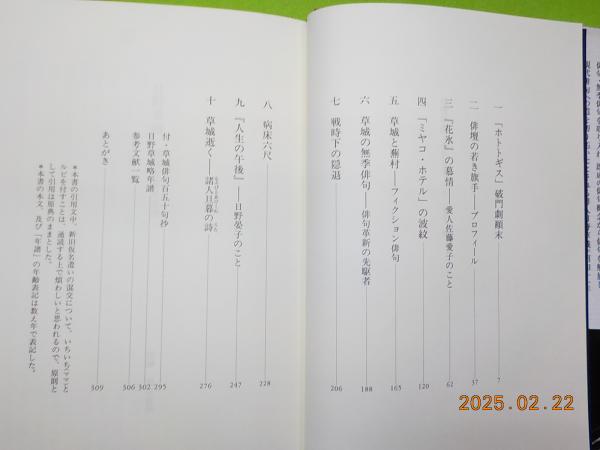 一 『ホトトギス』破門劇顛末 7
二 俳壇の若き旗手――プロフィール 37
三 『花氷』の慕情――愛人佐藤愛子のこと 62
四 「ミヤコ・ホテル」の波紋 120
五 草城と蕪村――フィクション俳句 165
六 草城の無季俳句――俳句革新の先駆者 188
七 戦時下の隠退 206
八 病床六尺 228
九 『人生の午後』――日野晏子のこと 247
十 草城逝く――諸人旦暮の詩 276
付・草城俳句百五十句抄 295
日野草城略年譜 302
参考文献一覧 306
あとがき 309
＊本書の引用文中、新旧仮名遣いの混交について、いちいちママと
ルビを付すことは、通読する上で煩わしいと思われるので、原則と
して引用は原典のままとした。
＊本書の本文、及び「年譜」の年齢表記は数え年で表記した。
2025.02.22